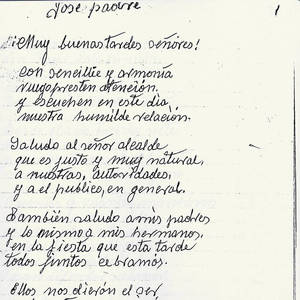 José padre
1
¡Muy buenas tardes señores!
con sencillie y armonía
ruego presten atención.
y escuchen en este dia,
nuestra humilde relación.
Saludo al señor alcalde
que es justo y muy natural,
a nuestras, autoridades,
y a el publico, en general.
También saludo a mis padres
y lo mismo a mis hermanos,
en la fiesta que esta tarde
todos juntos cebramos.
Ellos nos dieron el ser,